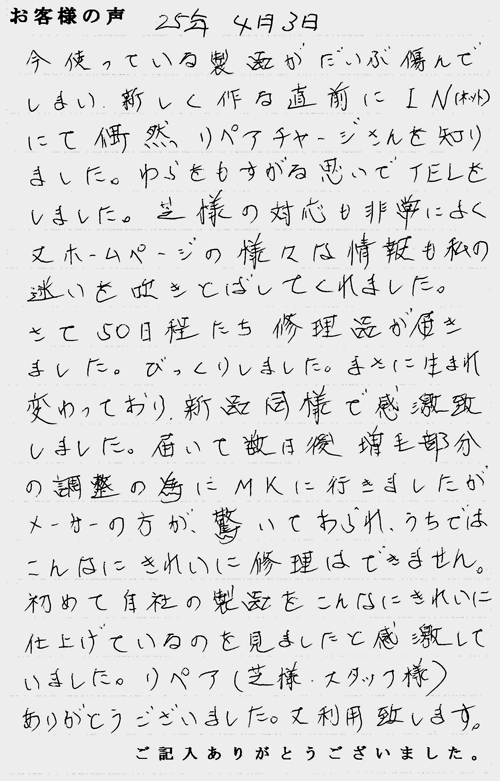 お客様の声 25年 4月3日
今使っている製品がだいぶ傷んで
しまい、新しく作る直前にIN(ネット)
にて偶然、リペアチャージさんを知り
ました。わらをもすがる思いでTELを
しました。芝様の対応も非常によく
又ホームページの様々な情報も私の
迷いを吹きとばしてくれました。
さて50日程たち修理品が届き
ました。びっくりしました。まさに生まれ
変わっており、新品同様で感激致
しました。届いて数日後増毛部分
の調整の為にMKに行きましたが
メーカーの方が、驚いておられ、うちでは
こんなにきれいに修理はできません。
初めて自社の製品をこんなにきれいに
仕上げているのを見ましたと感激して
いました。リペア(芝様・スタッフ様)
ありがとうございました。又利用致します。
ご記入ありがとうございました。